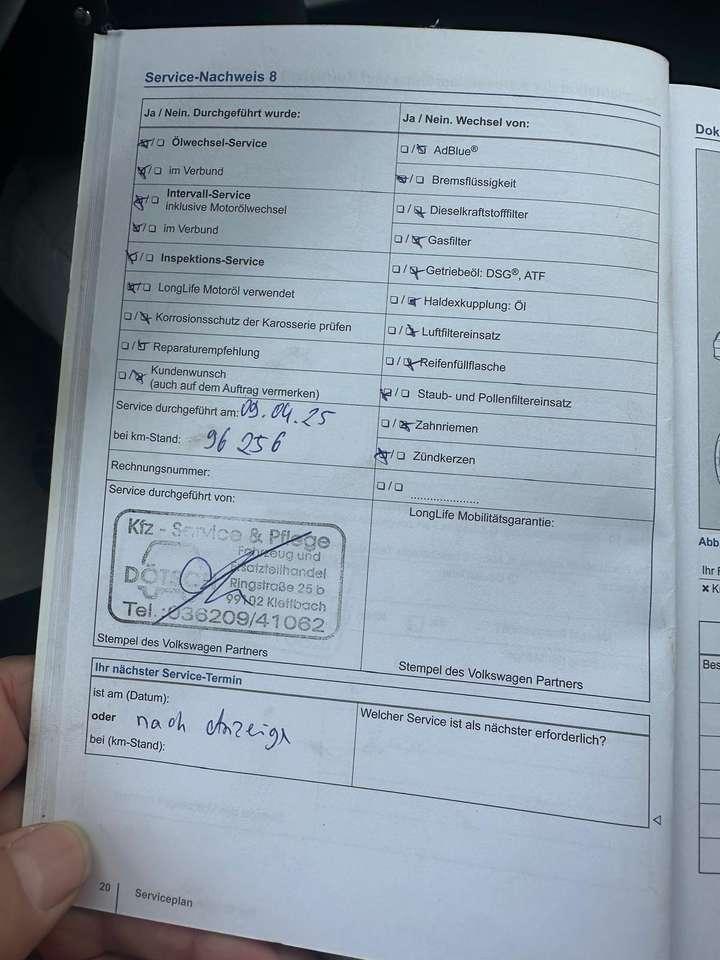 Service-Nachweis 8
Ja / Nein. Durchgeführt wurde:
☒/☐ Ölwechsel-Service
☒/☐ im Verbund
☒/☐ Intervall-Service
inklusive Motorölwechsel
☒/☐ im Verbund
☒/☐ Inspektions-Service
☒/☐ LongLife Motoröl verwendet
☐/☒ Korrosionsschutz der Karosserie prüfen
☐/☒ Reparaturempfehlung
☐/☒ Kundenwunsch
(auch auf dem Auftrag vermerken)
Service durchgeführt am: 09.04.25
bei km-Stand: 96 256
Rechnungsnummer:
Service durchgeführt von:
Kfz - Service & Pflege
Fahrzeug und
Ersatzteilhandel
DÖTSC
Ringstraße 25 b
99102 Klettbach
Tel.:036209/41062
Stempel des Volkswagen Partners
Ja / Nein. Wechsel von:
☐/☒ AdBlue®
☒/☐ Bremsflüssigkeit
☐/☒ Dieselkraftstofffilter
☐/☒ Gasfilter
☐/☒ Getriebeöl: DSG®, ATF
☐/☒ Haldexkupplung: Öl
☐/☒ Luftfiltereinsatz
☐/☒ Reifenfüllflasche
☒/☐ Staub- und Pollenfiltereinsatz
☐/☒ Zahnriemen
☒/☐ Zündkerzen
☐/☐ ......................
LongLife Mobilitätsgarantie:
Stempel des Volkswagen Partners
Ihr nächster Service-Termin
ist am (Datum):
oder nach Anzeige
bei (km-Stand):
Welcher Service ist als nächster erforderlich?
20
Serviceplan
Dok
Abb
Ihr F
Bes